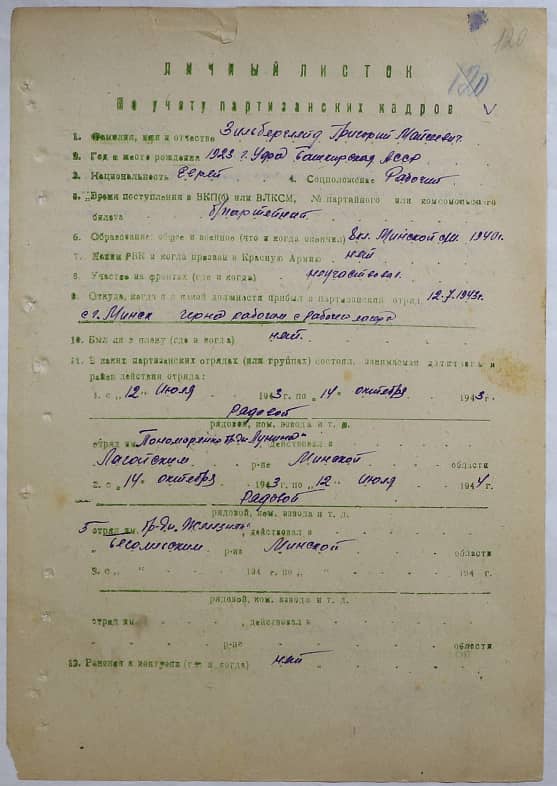 120
120
ЛИЧНЫЙ ЛИСТОК
По учету партизанских кадров
1. Фамилия, имя и отчество Зильберглейд Григорий
2. Год и место рождения 1923 г. Уфа Башкирская АССР
3. Национальность Еврей 4. Соцположение Рабочий
5. Время поступления в ВКП(б) или ВЛКСМ, № партийного или комсомольского
билета б/партейний
6. Образование: общее и военное (что и когда окончил) 8 кл. Минской 1940 г.
7. Каким РВК и когда призван в Красную Армию нет
8. Участие на фронтах (где и когда)
9. Откуда, когда и в какой должности прибыл в партизанский отряд 12.7.1943 г.
с г. Минск
10. Был ли в плену (где и когда) нет.
11. В каких партизанских отрядах (или группах) состоял, занимаемая должность и
район действия отряда:
1. с „ 12 " Июля 1943 г. по „ 14 " октября 1943 г.
Радовой
рядовой, ком. взвода и т. д.
отряд им. Пономоренко действовал в
Лагойским р-не Минской области
2. с „ 14 " октября 1943 г. по „ 12 " Июля 1944 г.
Радовой
рядовой, ком. взвода и т. д.
отряд им. , действовал в
Бегомлским р-не Минской области
3. с „ " 194 г. по „ " 194 г.
рядовой, ком. взвода и т. д.
отряд им. , действовал в
р-не области
12. Ранения и контузии (где и когда) нет